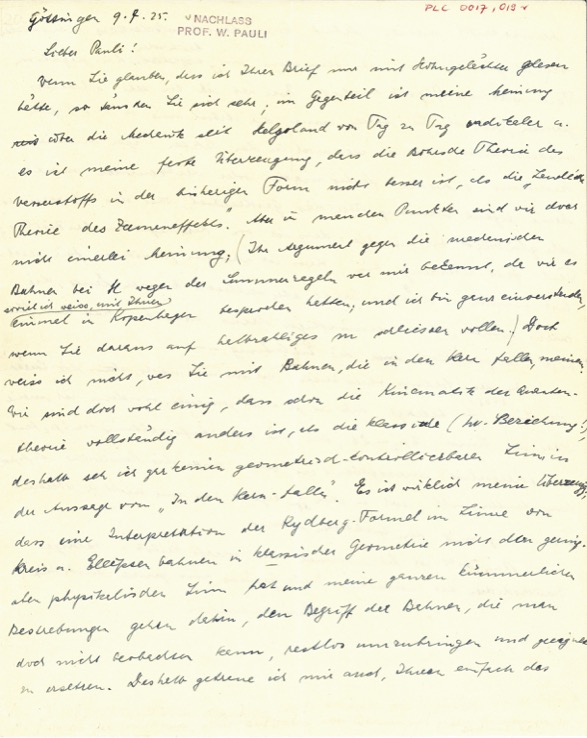 Göttingen 9.7.25.
NACHLASS
PROF. W. PAULI
PLC 0017, 019 r
Lieber Pauli!
Wenn Sie glauben, dass ich Ihren Brief nur mit Hohngelächter gelesen
hätte, so täuschen Sie sich sehr; im Gegenteil ist meine Meinung
über die Mechanik seit Helgoland von Tag zu Tag radikaler u.
es ist meine feste Überzeugung, dass die Bohrsche Theorie des
Wasserstoffs in der bisherigen Form nicht besser ist, als die „Landésche
Theorie des Zeemaneffekts". Aber in manchen Punkten sind wir doch
nicht einerlei Meinung; (Ihr Argument gegen die mechanischen
Bahnen bei H wegen der Summenregeln war mir bekannt, da wir es
soviel ich weiss, mit Ihnen
einmal in Kopenhagen besprochen hatten; und ich bin ganz einverstanden,
wenn Sie daraus auf halbzahliges n schliessen wollen.) Doch
weiss ich nicht, was Sie mit Bahnen, die in den Kern fallen, meinen.
Wir sind doch wohl einig, dass schon die Kinematik der Quanten-
theorie vollständig anders ist, als die klassische (hν-Beziehung!),
deshalb seh ich gar keinen geometrisch-kontrollierbaren Sinn in
der Aussage vom „In den Kern-fallen". Es ist wirklich meine Überzeugg,
dass eine Interpretation der Rydberg-Formel im Sinne von
Kreis u. Ellipsenbahnen in klassischer Geometrie nicht den gering-
sten physikalischen Sinn hat und meine ganzen kümmerlichen
Bestrebungen gehen dahin, den Begriff der Bahnen, die man
doch nicht beobachten kann, restlos umzubringen und geeignet
zu ersetzen. Deshalb getraue ich mir auch, Ihnen einfach das